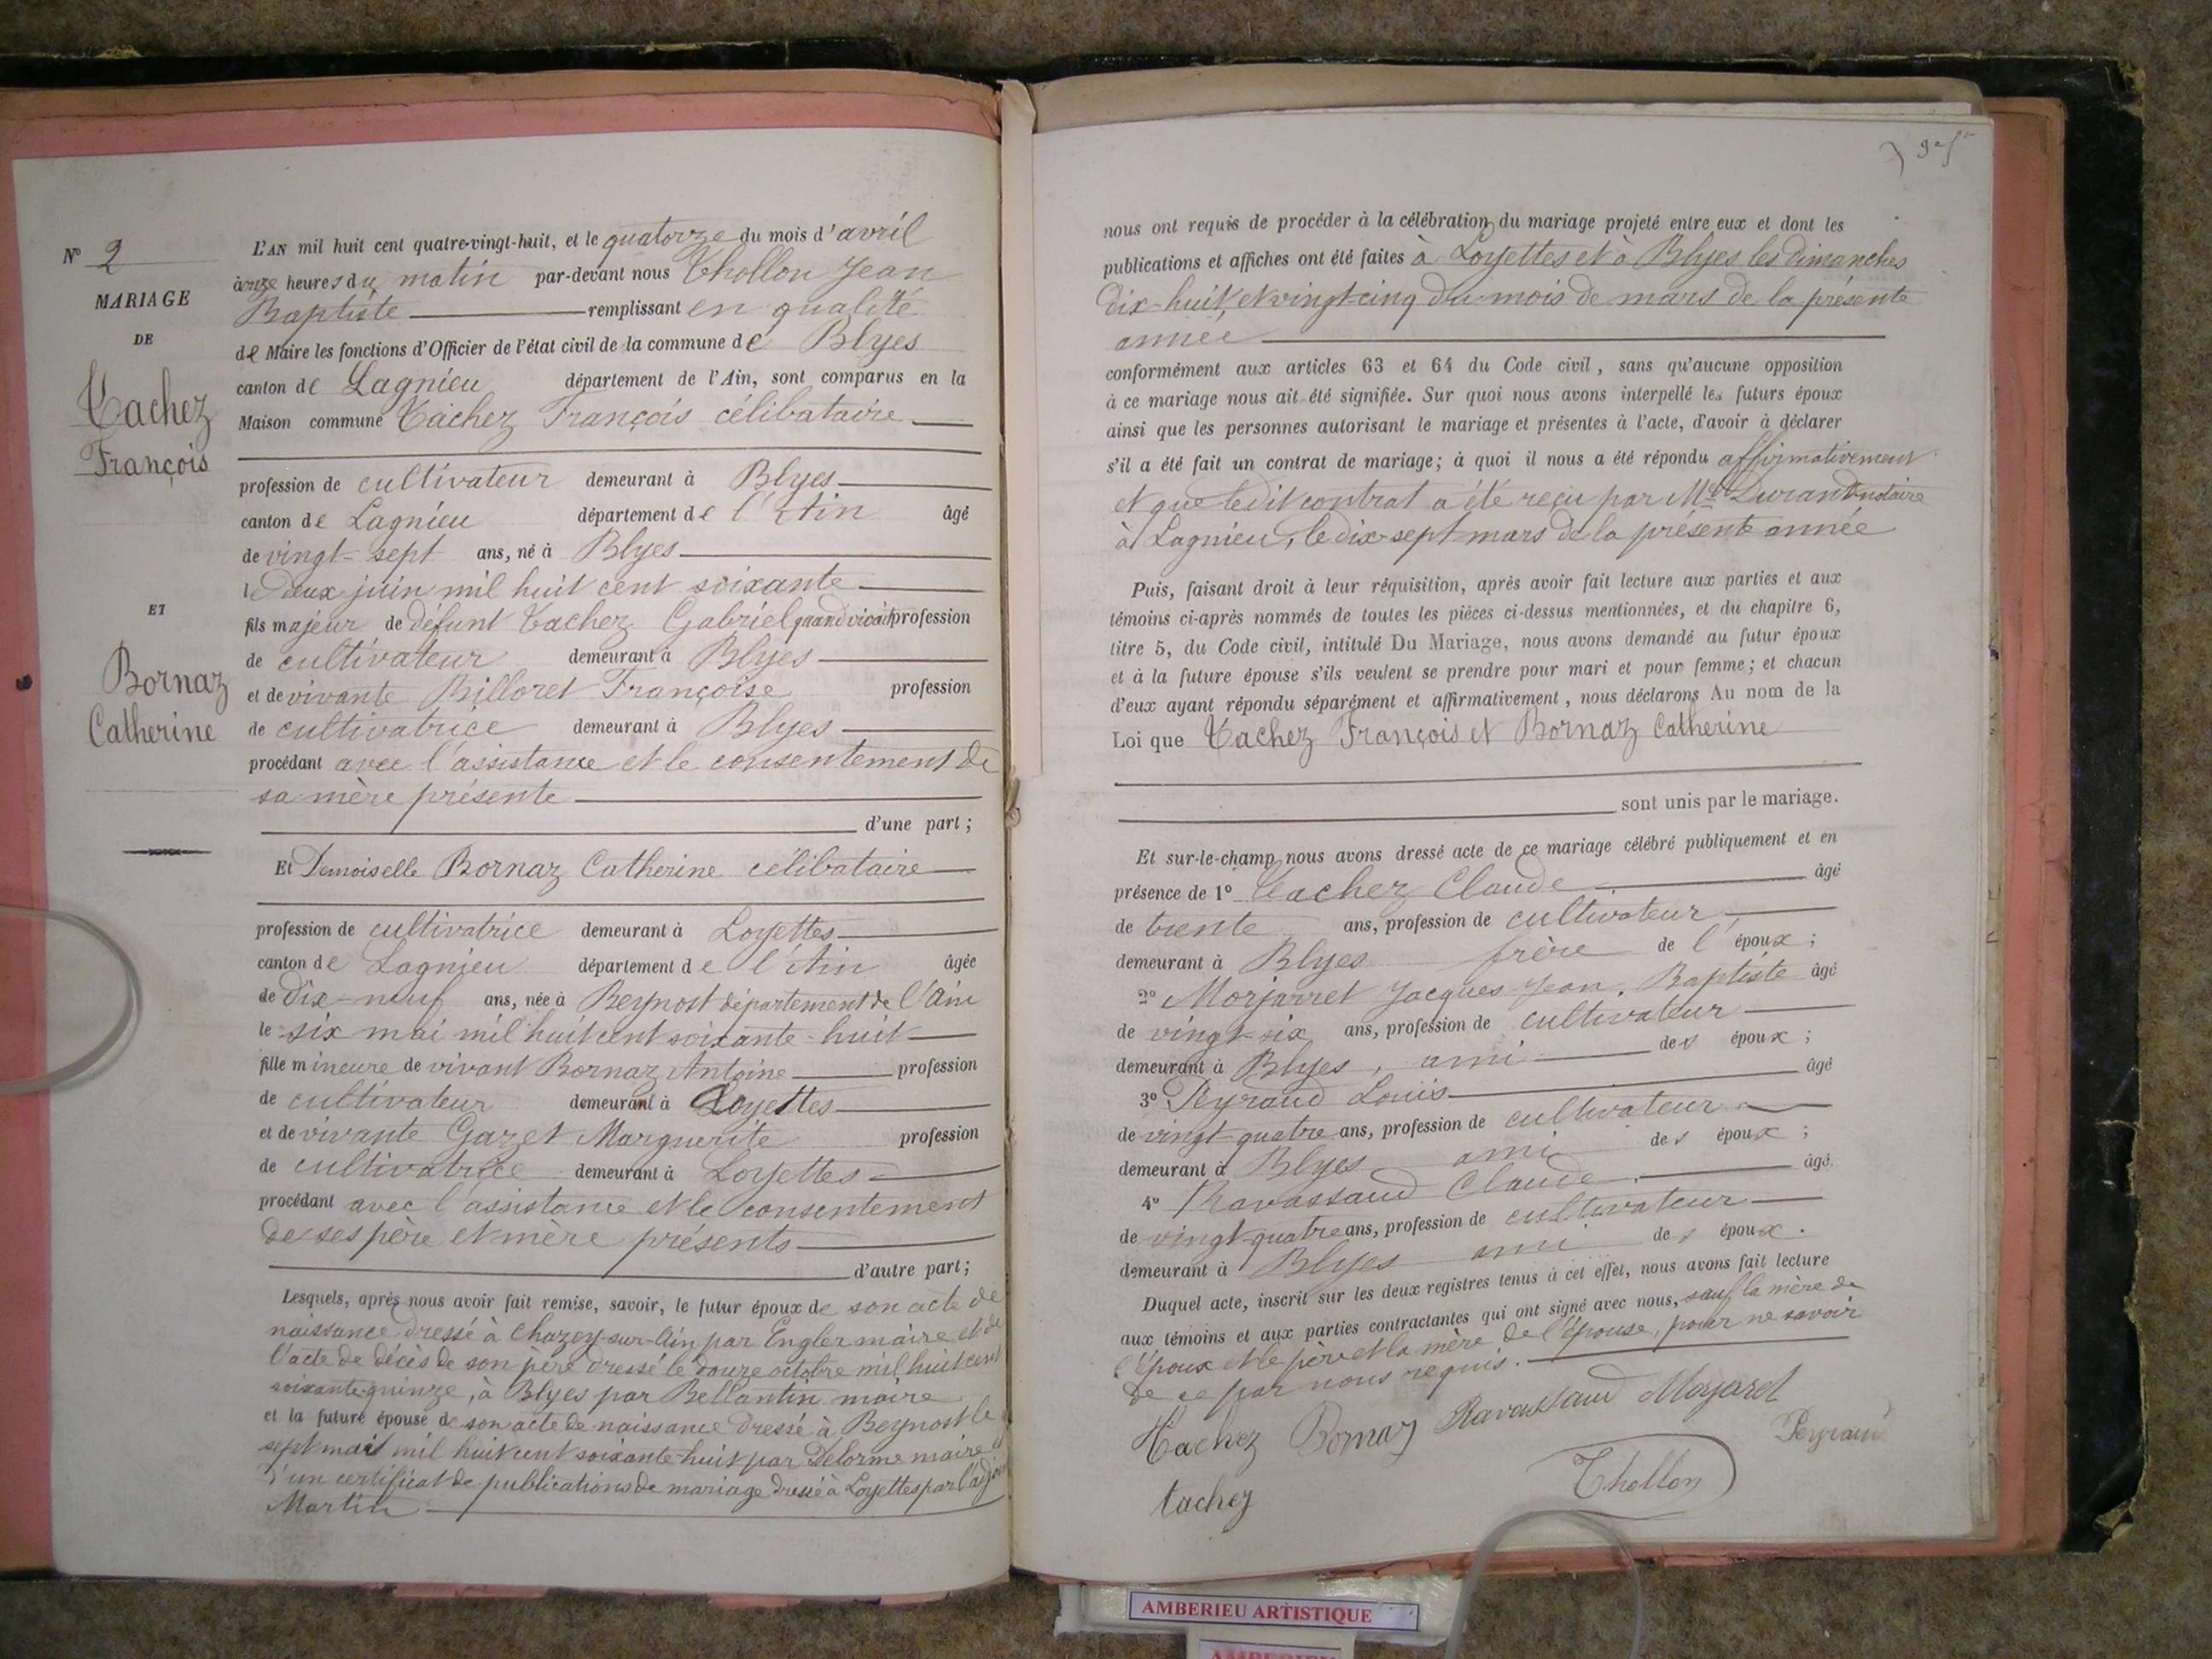 Nº 2
MARIAGE
DE
Tachez
François
ET
Bornaz
Catherine
L'AN mil huit cent quatre-vingt-huit, et le quatorze du mois d'avril
à onze heures du matin par-devant nous Thollon Jean
Baptiste remplissant en qualité
de Maire les fonctions d'Officier de l'état civil de la commune de Blyes
canton de Lagnieu département de l'Ain, sont comparus en la
Maison commune Tachez François célibataire
profession de cultivateur demeurant à Blyes
canton de Lagnieu département de l'Ain âgé
de vingt-sept ans, né à Blyes
le deux juin mil huit cent soixante
fils majeur de défunt Tachez Gabriel quand vivait profession
de cultivateur demeurant à Blyes
et de vivante Billoret Françoise profession
de cultivatrice demeurant à Blyes
procédant avec l'assistance et le consentement de
sa mère présente
d'une part ;
Et Demoiselle Bornaz Catherine célibataire
profession de cultivatrice demeurant à Loyettes
canton de Lagnieu département de l'Ain âgée
de dix-neuf ans, née à Beynost département de l'Ain
le six mai mil huit cent soixante-huit
fille mineure de vivant Bornaz Antoine profession
de cultivateur demeurant à Loyettes
et de vivante Gazet Marguerite profession
de cultivatrice demeurant à Loyettes
procédant avec l'assistance et le consentement
de ses père et mère présents
d'autre part ;
Lesquels, après nous avoir fait remise, savoir, le futur époux de son acte de
naissance dressé à Chazey-sur-Ain par Engler maire et de
l'acte de décès de son père dressé le douze octobre mil huit cent
soixante-quinze, à Blyes par Bellantin maire
et la future épouse de son acte de naissance dressé à Beynost le
sept mai mil huit cent soixante-huit par Delorme maire et
d'un certificat de publications de mariage dressé à Loyettes par l'adjoint
Martin
nous ont requis de procéder à la célébration du mariage projeté entre eux et dont les
publications et affiches ont été faites à Loyettes et à Blyes les dimanches
dix-huit et vingt-cinq du mois de mars de la présente
année
conformément aux articles 63 et 64 du Code civil, sans qu'aucune opposition
à ce mariage nous ait été signifiée. Sur quoi nous avons interpellé les futurs époux
ainsi que les personnes autorisant le mariage et présentes à l'acte, d'avoir à déclarer
s'il a été fait un contrat de mariage ; à quoi il nous a été répondu affirmativement
et que ledit contrat a été reçu par Me Durand notaire
à Lagnieu, le dix-sept mars de la présente année
Puis, faisant droit à leur réquisition, après avoir fait lecture aux parties et aux
témoins ci-après nommés de toutes les pièces ci-dessus mentionnées, et du chapitre 6,
titre 5, du Code civil, intitulé Du Mariage, nous avons demandé au futur époux
et à la future épouse s'ils veulent se prendre pour mari et pour femme ; et chacun
d'eux ayant répondu séparément et affirmativement, nous déclarons Au nom de la
Loi que Tachez François et Bornaz Catherine
sont unis par le mariage.
Et sur-le-champ nous avons dressé acte de ce mariage célébré publiquement et en
présence de 1º Tachez Claude âgé
de trente ans, profession de cultivateur,
demeurant à Blyes frère de l'époux ;
2º Morjarret Jacques Jean Baptiste âgé
de vingt-six ans, profession de cultivateur
demeurant à Blyes, ami des époux ;
3º Peyraud Louis âgé
de vingt-quatre ans, profession de cultivateur
demeurant à Blyes ami des époux ;
4º Ravassaud Claude âgé
de vingt-quatre ans, profession de cultivateur
demeurant à Blyes ami des époux.
Duquel acte, inscrit sur les deux registres tenus à cet effet, nous avons fait lecture
aux témoins et aux parties contractantes qui ont signé avec nous, sauf la mère de
l'époux et le père et la mère de l'épouse, pour ne savoir
de ce par nous requis.
Tachez Bornaz Ravassaud Morjaret
Peyraud
Tachez Thollon
AMBERIEU ARTISTIQUE
AMBERIEU